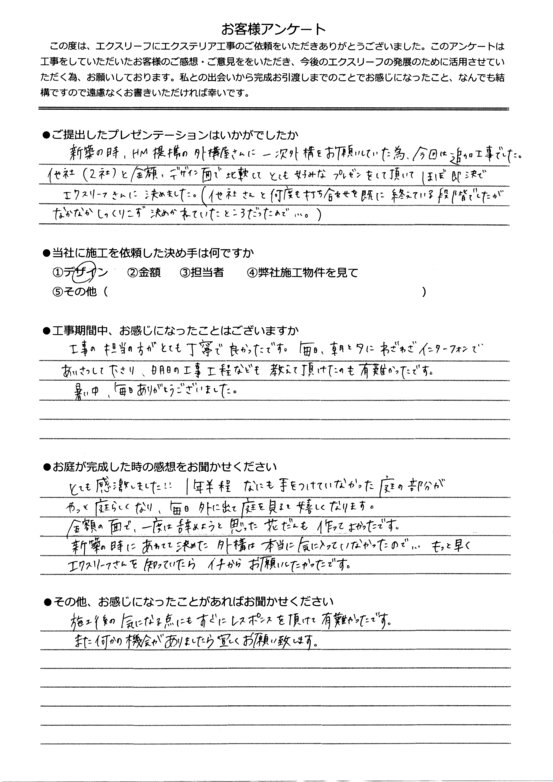 お客様アンケート
この度は、エクスリーフにエクステリア工事のご依頼をいただきありがとうございました。このアンケートは
工事をしていただいたお客様のご感想・ご意見ををいただき、今後のエクスリーフの発展のために活用させてい
ただく為、お願いしております。私との出会いから完成お引渡しまでのことでお感じになったこと、なんでも結
構ですので遠慮なくお書きいただければ幸いです。
●ご提出したプレゼンテーションはいかがでしたか
新築の時、HM提携の外構屋さんに一次外構をお願いしていた為、今回は追加工事でした。
他社(2社)と金額、デザイン面で比較してとても好みなプレゼンをして頂いてほぼ即決で
エクスリーフさんに決めました。(他社さんと何度も打ち合わせを既に終えている段階でしたが
なかなかしっくりこず決めかねていたところだったので…。)
●当社に施工を依頼した決め手は何ですか
①デザイン ②金額 ③担当者 ④弊社施工物件を見て
⑤その他( )
●工事期間中、お感じになったことはございますか
工事の担当の方がとても丁寧で良かったです。毎日、朝と夕にわざわざインターフォンで
あいさつして下さり、明日の工事工程なども教えて頂けたのも有難かったです。
暑い中、毎日ありがとうございました。
●お庭が完成した時の感想をお聞かせください
とても感激しました!! 1年半程なにも手をつけていなかった庭の部分が
やっと庭らしくなり、毎日外に出て庭を見ては嬉しくなります。
金額の面で、一度は諦めようと思った花だんも作ってよかったです。
新築の時にあわてて決めた外構は本当に気に入っていなかったので… もっと早く
エクスリーフさんを知っていたらイチからお願いしたかったです。
●その他、お感じになったことがあればお聞かせください
施工後の気になる点にもすぐにレスポンスを頂けて有難かったです。
また何かの機会がありましたら宜しくお願い致します。